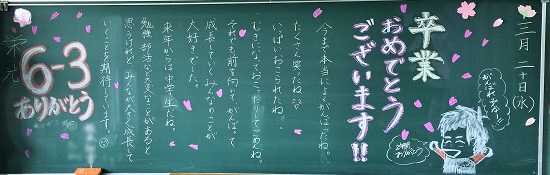 三月二十日(水)
卒業
おめでとう
ございます!!
今まで本当によくがんばったね。
たくさん笑ったね。
いっぱいおこられたね。
むきになっておこったりしてごめんね。
それでも前を向いて、がんばって
成長していくみんなのことが
大好きでした。
来年からは中学生だね。
勉強、部活など大変なことがあると
思うけれど、みんなが大きく成長して
いくことを期待しています。
6-3
ありがとう
がんばれよー!